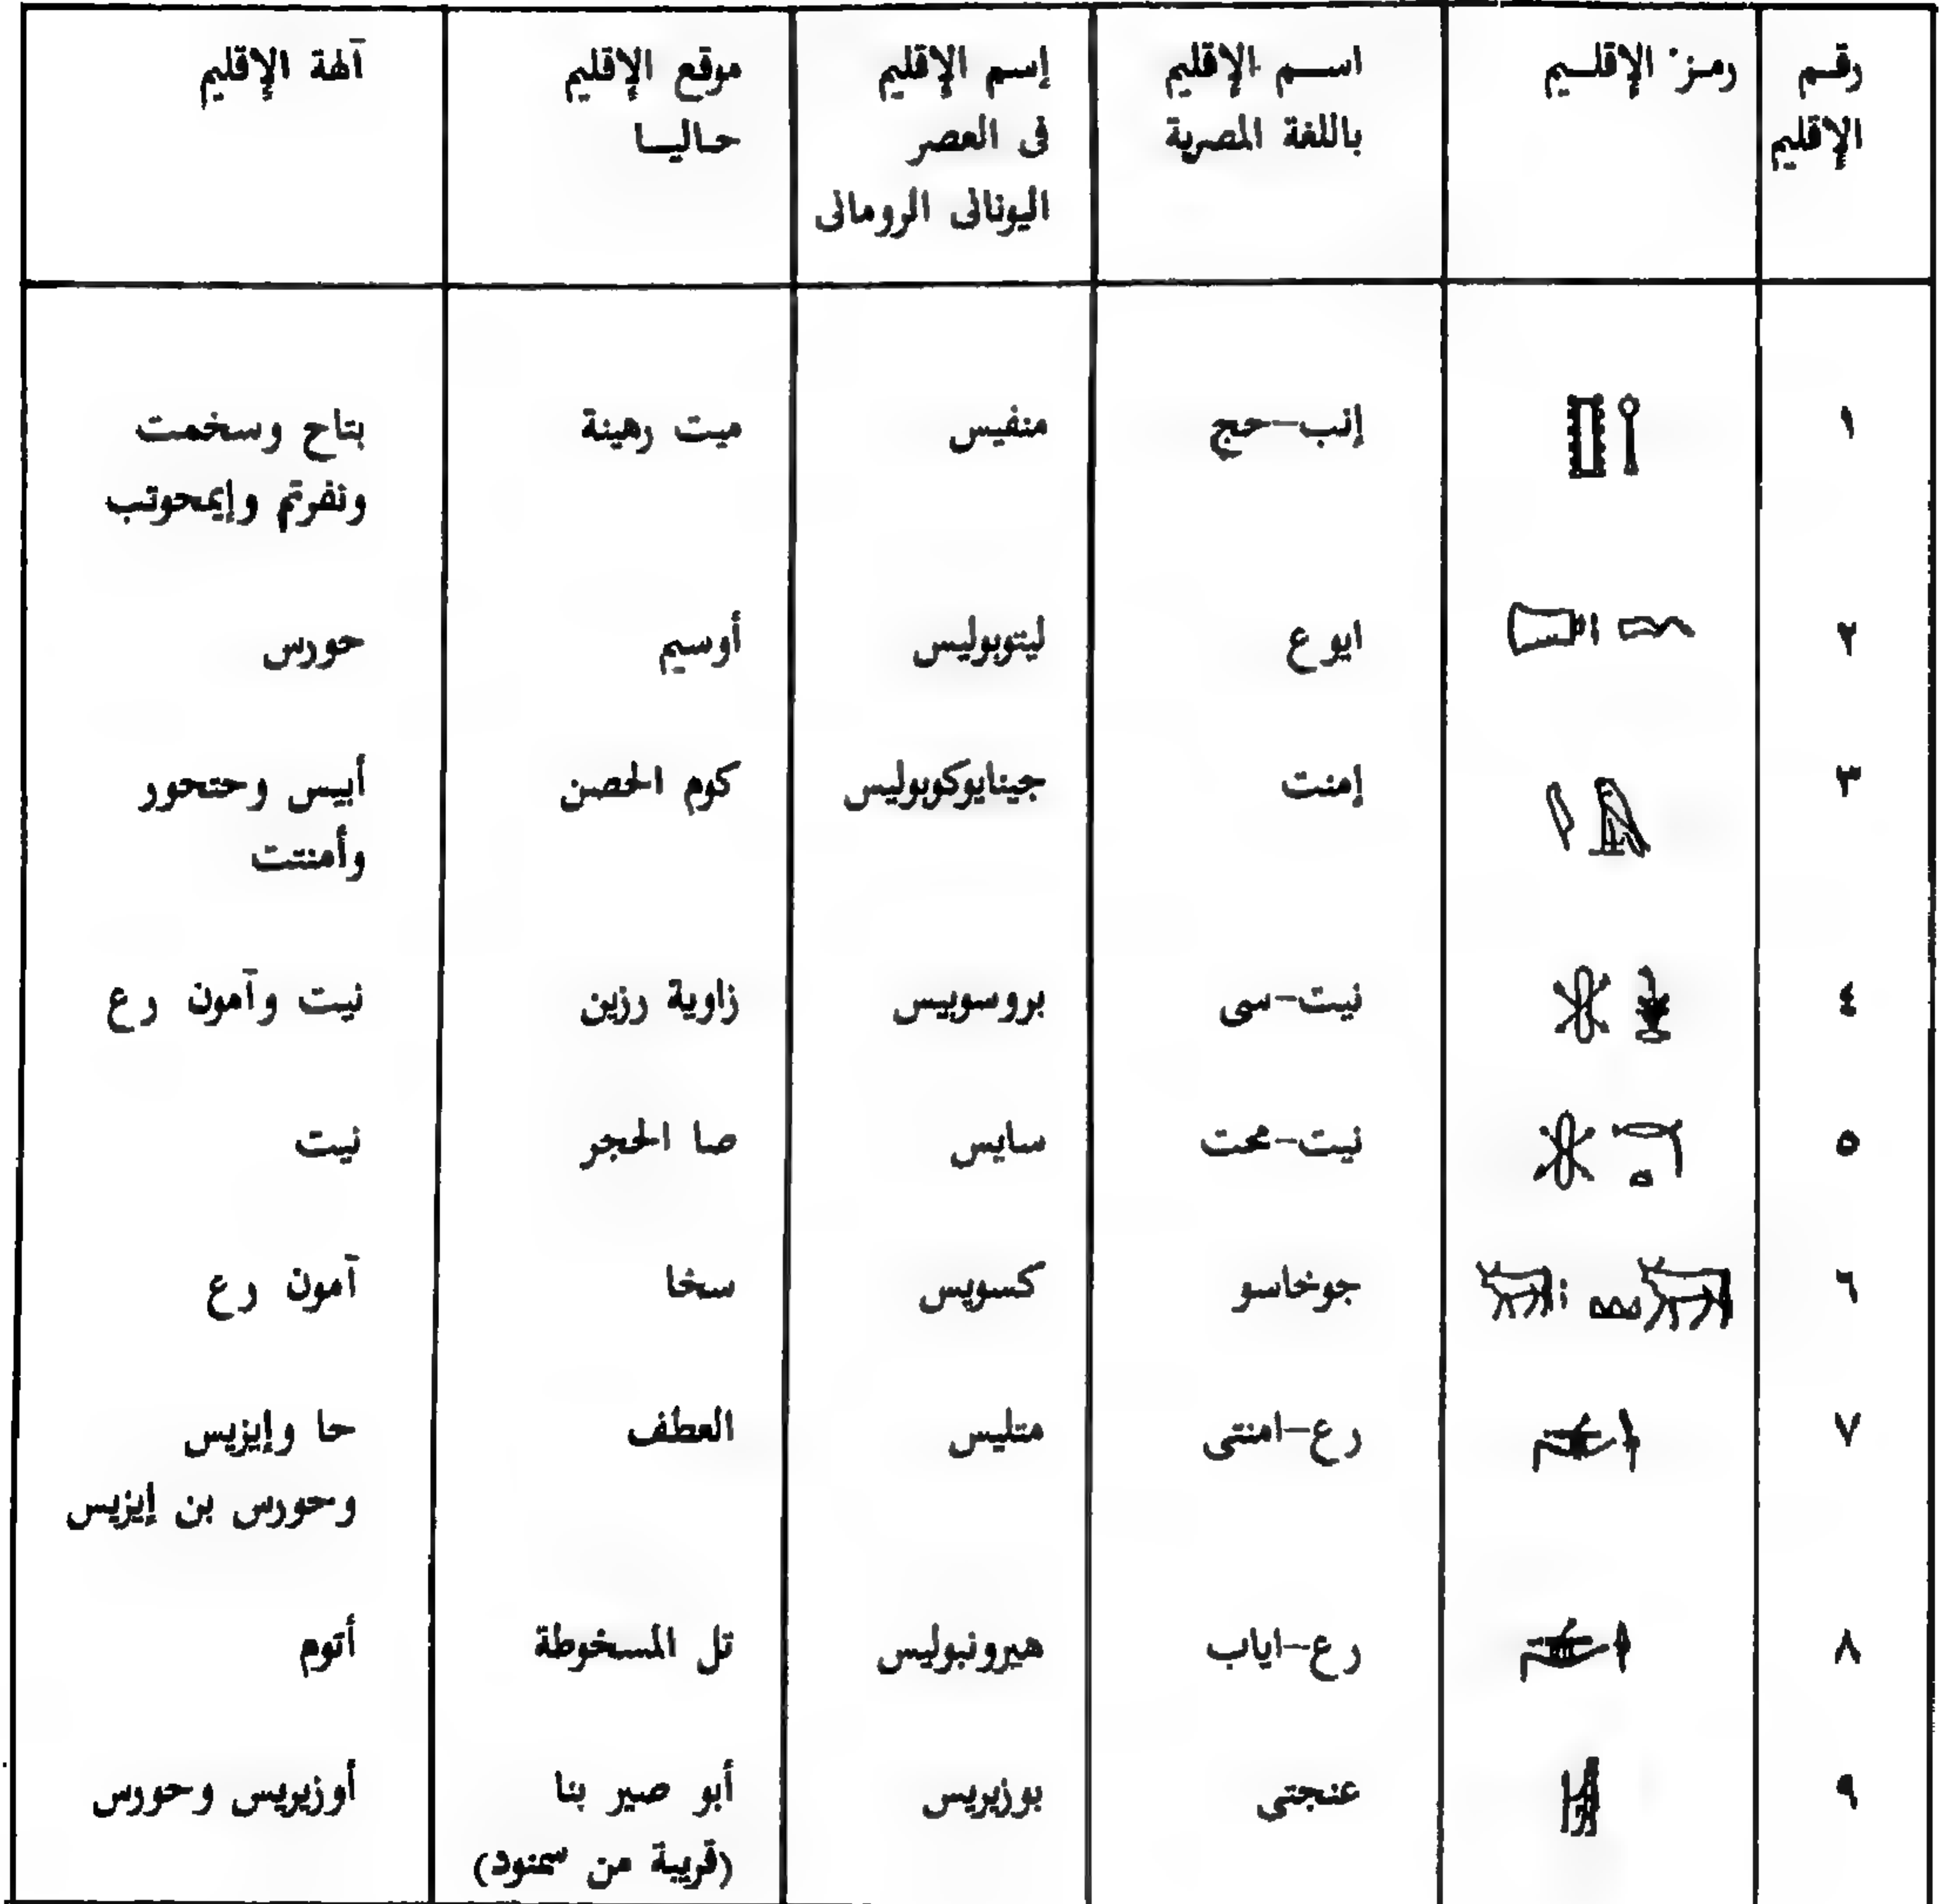 رقم الإقليم	رمز الإقليم	اسم الإقليم باللغة المصرية	إسم الإقليم فى العصر اليونانى الرومانى	موقع الإقليم حاليا	آلهة الإقليم
١	إنب-حج	منفيس	ميت رهينة	بتاح وسخمت
ونفرتم وإيمحوتب
٢	ايوع	ليتوبوليس	أوسيم	حورس
٣	إمنت	جينايوكوبوليس	كوم الحصن	أبيس وحتحور
وأمنتت
٤	نيت-سى	بروسوبيس	زاوية رزين	نيت وآمون رع
٥	نيت-محت	سايس	صا الحجر	نيت
٦	جوخاسو	كسويس	سخا	آمون رع
٧	رع-امنتى	متليس	العطف	حا وإيزيس
وحورس بن إيزيس
٨	رع-اياب	هيرونبوليس	تل المسخوطة	أتوم
٩	عنجتى	بوزيريس	أبو صير بنا	أوزيريس وحورس
(قريبة من سمنود)